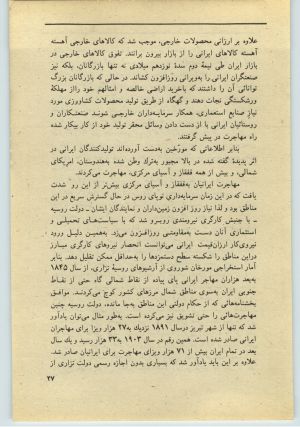 علاوه بر ارزانی محصولات خارجی، موجب شد که کالاهای خارجی آهسته
آهسته کالاهای ایرانی را از بازار بیرون برانند. تفوق کالاهای خارجی در
بازار ایران طی نیمهٔ دوم سدهٔ نوزدهم میلادی نه تنها بازرگانان، بلکه نیز
صنعتگران ایرانی را به‌ویرانی روزافزون کشاند. در حالی که بازرگانان بزرگ
توانائی آن را داشتند که باخرید اراضی خالصه و امثالهم خود رااز مهلکهٔ
ورشکستگی نجات دهند و گهگاه از طریق تولید محصولات کشاورزی مورد
نیاز صنایع استعماری، همکار سرمایه‌داران خارجی شوند صنعتکاران و
روستائیان ایرانی با از دست دادن وسائل محقر تولید خود از کار بیکار شده
راه مهاجرت در پیش گرفتند.
بنابر اطلاعاتی که مورخین به‌دست آورده‌اند تولیدکنندگان ایرانی در
اثر پدیدهٔ گفته شده در بالا مجبور به‌ترک وطن شده به‌هندوستان، امریکای
شمالی، و بیش از همه قفقاز و آسیای مرکزی، مهاجرت می‌کردند.
مهاجرت ایرانیان به‌قفقاز و آسیای مرکزی بیش‌تر از این رو شدت
یافت که در این زمان سرمایه‌داری نوپای روس در حال گسترش سریع در این
مناطق بود و لذا نیاز روز افزون زمین‌داران و نمایندگان ایشان ـ دولت روسیه
ـ با جنبش کارگری نیرومندی روبرو شد که با سیاست‌های تحمیلی و
استثماری آنان دست به‌مقاومتی روزافزون می‌زد. به‌همین دلیل ورود
نیروی‌کار ارزان‌قیمت ایرانی می‌توانست انحصار نیروهای کارگری مبارز
دراین مناطق را شکسته سطح دستمزدها را به‌حداقل ممکن تقلیل دهد. بنابر
آمار استخراجی مورخان شوروی از آرشیوهای روسیهٔ تزاری، از سال ۱۸۴۵
به‌بعد هزاران مهاجر ایرانی پای پیاده از نقاط شمالی گاه حتی از نقاط
جنوبی ایران به‌سوی مناطق شمال مرزهای کشور کوچ می‌کردند. موافق
بخشنامه‌هائی که از حکام دولتی این مناطق به‌جا مانده، دولت روسیه چنین
مهاجرت‌هائی را حتی تشویق نیز می‌کرده است. به‌طور مثال می‌توان یادآور
شد که تنها از شهر تبریز درسال ۱۸۹۱ نزدیك به۲۷ هزار ویزا برای مهاجران
ایرانی صادر شده است. همین رقم در سال ۱۹۰۳ به۳۳ هزار رسید و یك سال
بعد در تمام ایران بیش از ۷۱ هزار ویزای مهاجرت برای ایرانیان صادر شد.
علاوه بر این باید یادآور شد که بسیاری بدون اجازه رسمی دولت تزاری از
۲۷